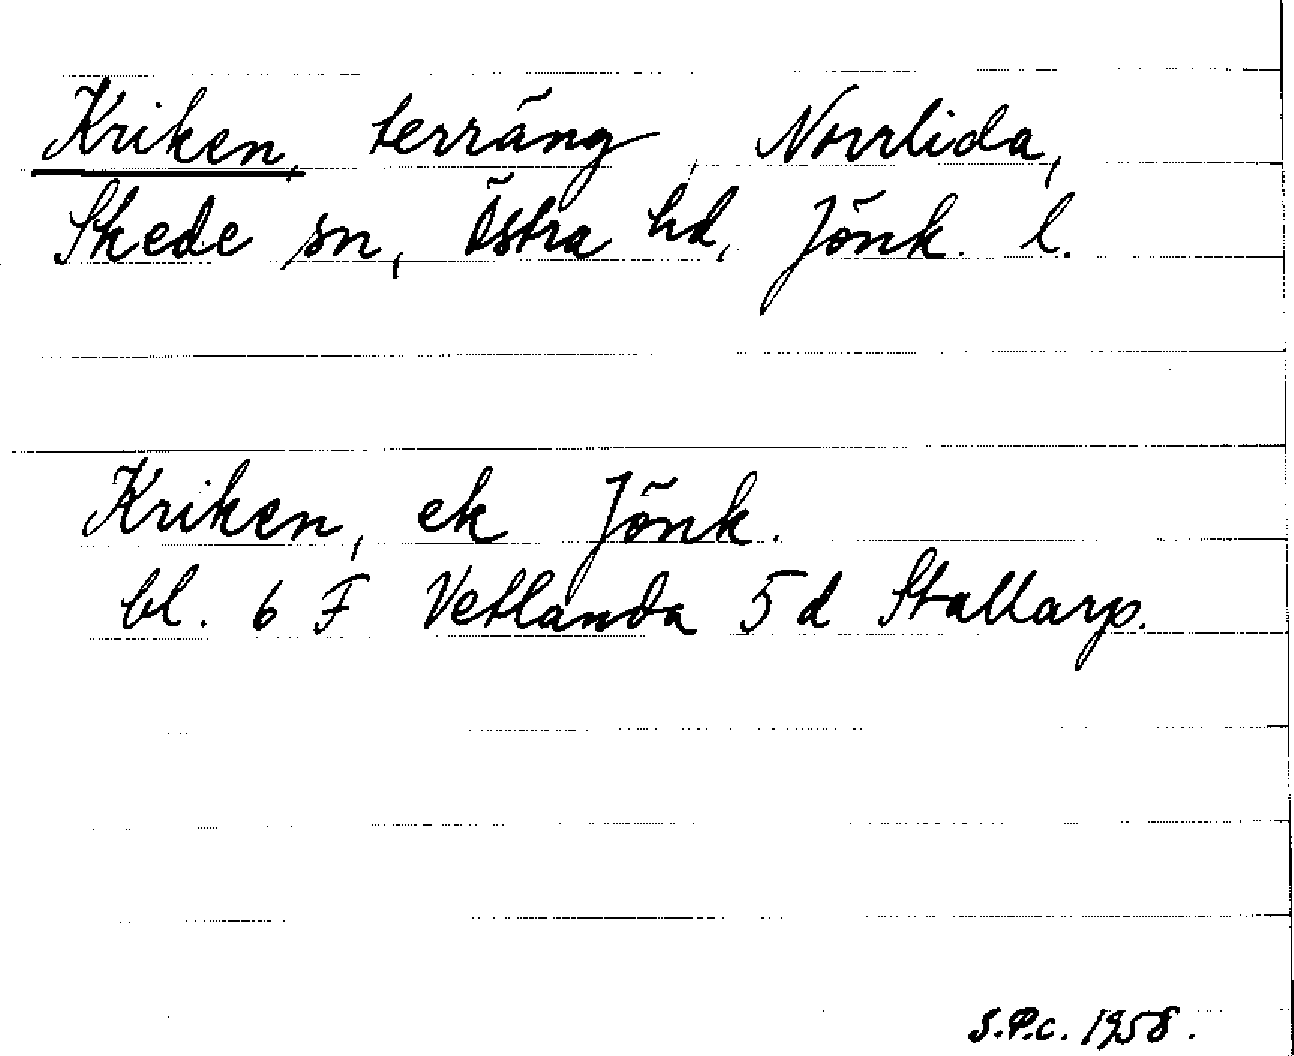 Kriken, terräng, Norrlida,
Skede sn, Östra hd, Jönk. l.
Kriken, ek Jönk.
bl. 6 F Vetlanda 5 d Stallarp.
S.P.c. 1958.